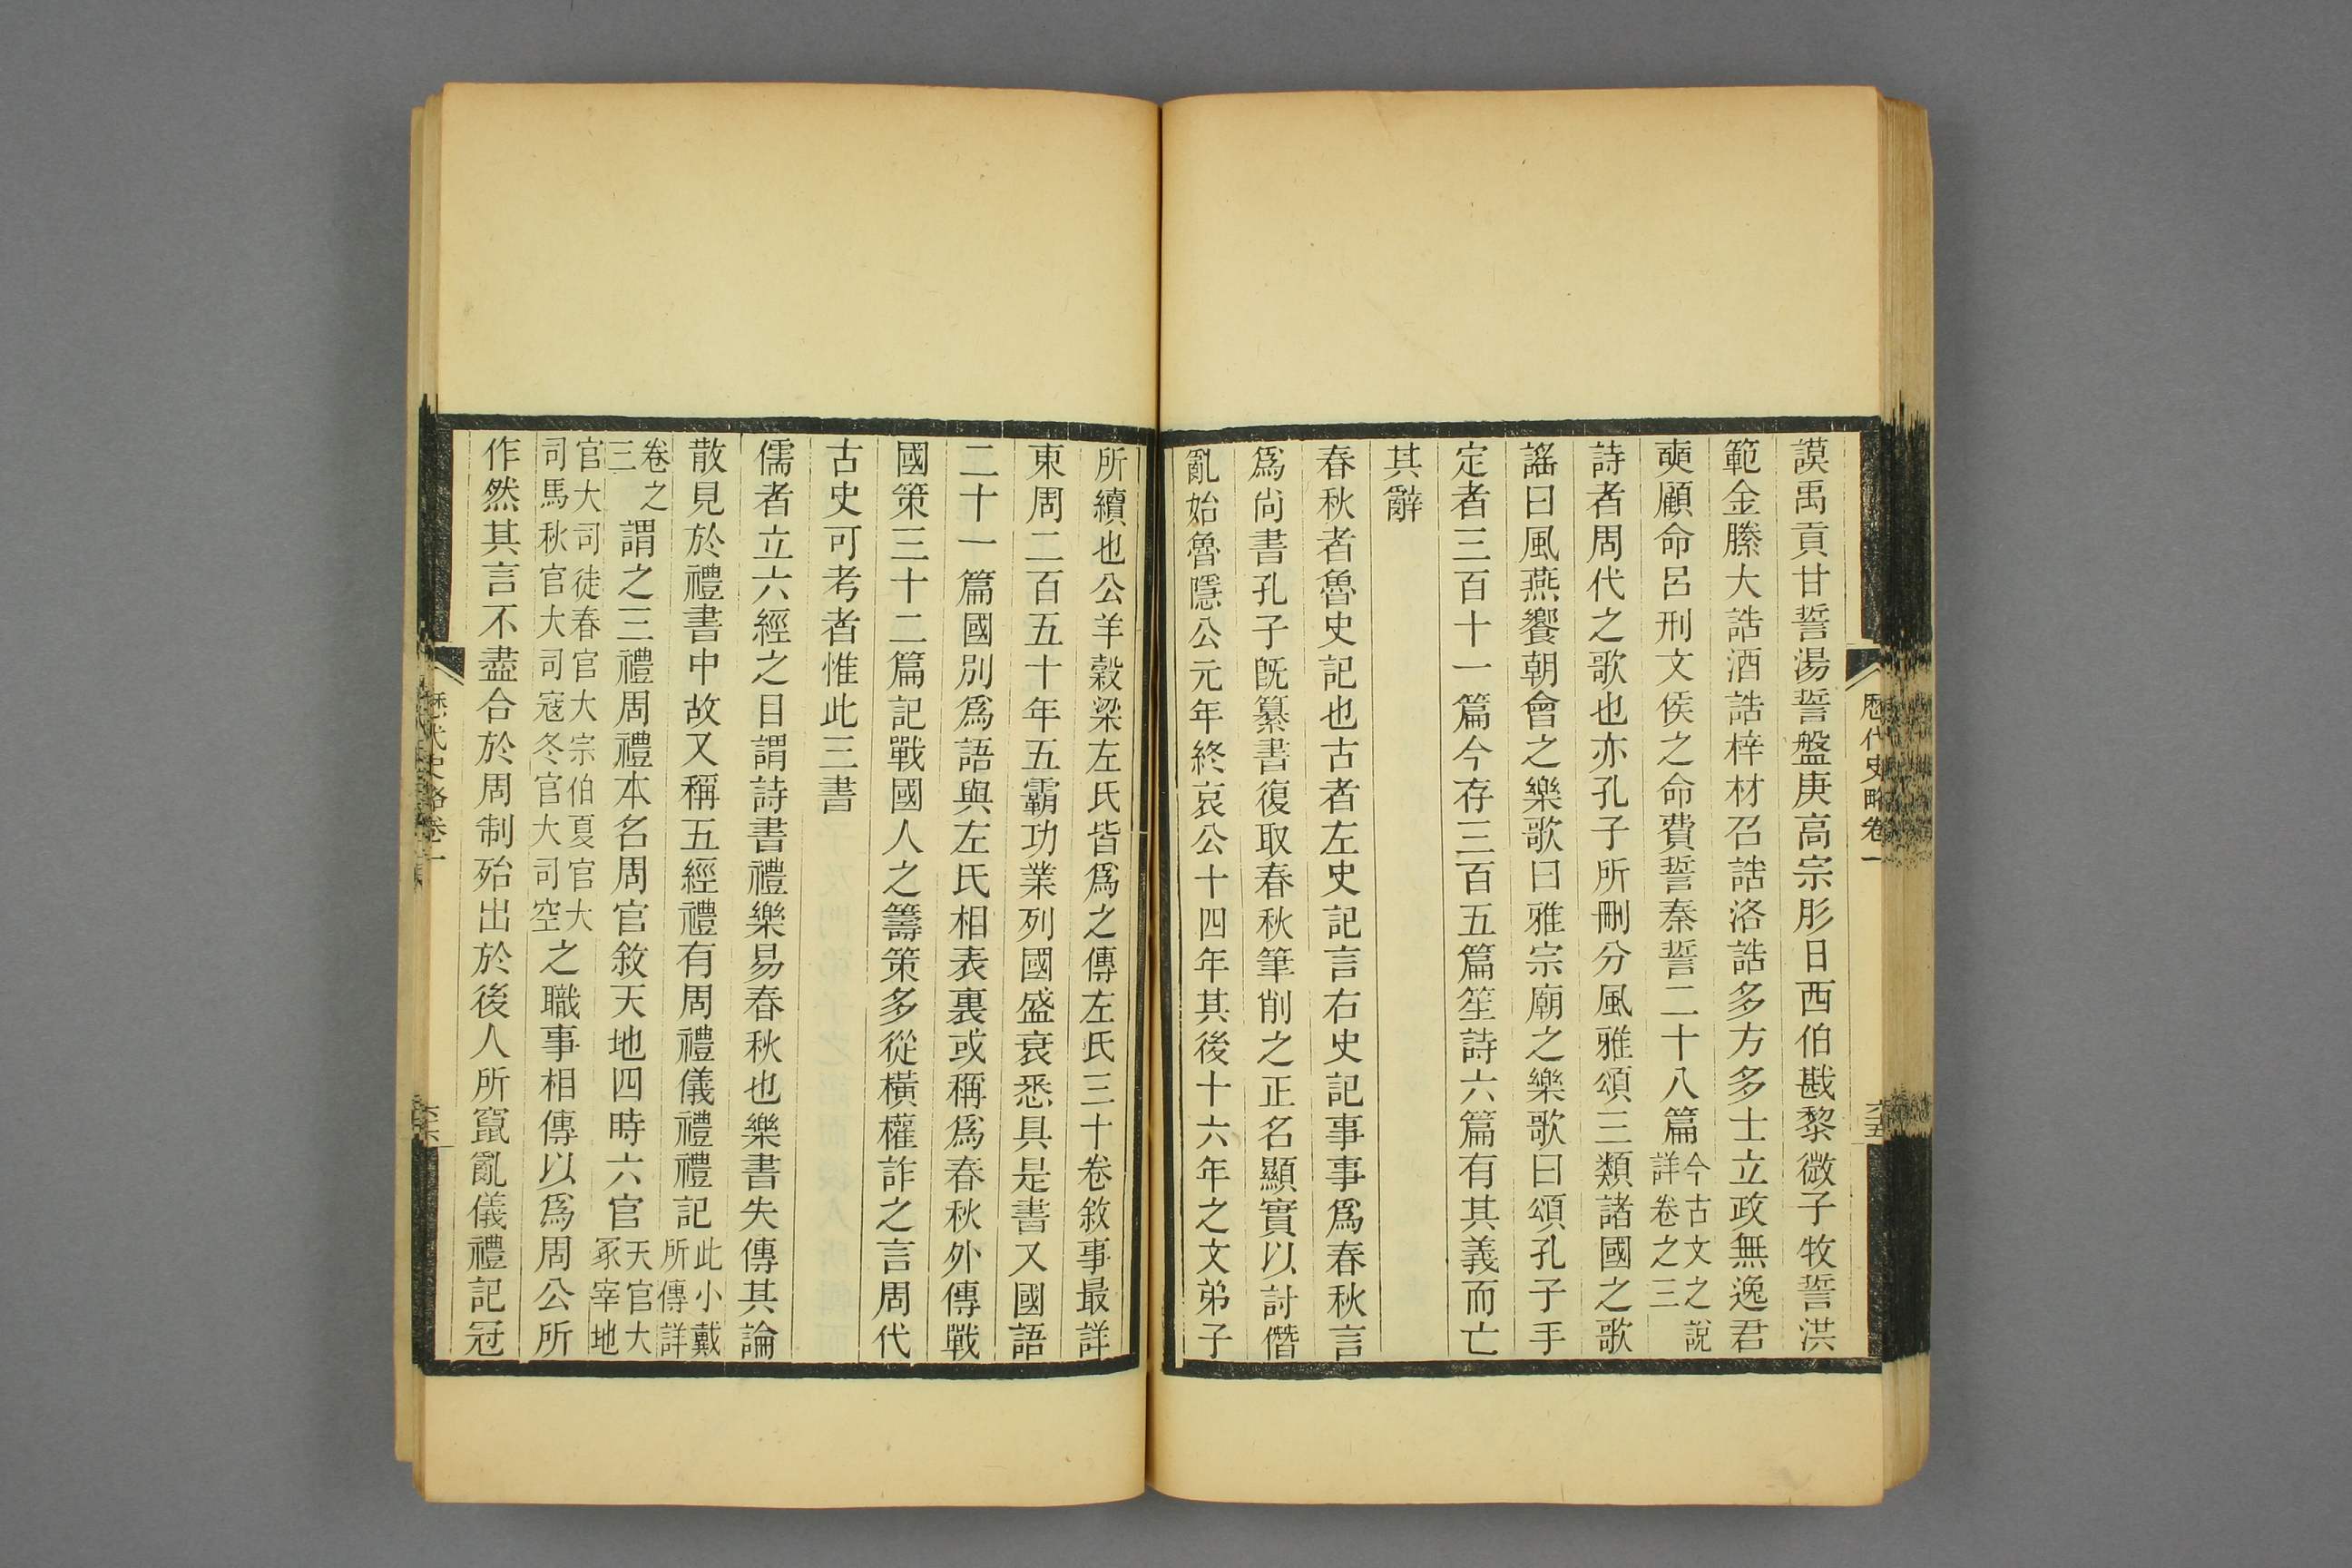 謨禹貢甘誓湯誓盤庚高宗肜日西伯戡黎微子牧誓洪
範金縢大誥酒誥梓材召誥洛誥多方多士立政無逸君
奭顧命呂刑文侯之命費誓秦誓二十八篇今古文之說詳卷之三
詩者周代之歌也亦孔子所刪分風雅頌三類諸國之歌
謠曰風燕饗朝會之樂歌曰雅宗廟之樂歌曰頌孔子手
定者三百十一篇今存三百五篇笙詩六篇有其義而亡
其辭
春秋者魯史記也古者左史記言右史記事事爲春秋言
爲尚書孔子既纂書復取春秋筆削之正名顯實以討僭
亂始魯隱公元年終哀公十四年其後十六年之文弟子
歷代史略卷一
六十五
所續也公羊穀梁左氏皆爲之傳左氏三十卷敘事最詳
東周二百五十年五霸功業列國盛衰悉具是書又國語
二十一篇國別爲語與左氏相表裏或稱爲春秋外傳戰
國策三十二篇記戰國人之籌策多從橫權詐之言周代
古史可考者惟此三書
儒者立六經之目謂詩書禮樂易春秋也樂書失傳其論
散見於禮書中故又稱五經禮有周禮儀禮禮記此小戴所傳詳
卷之三謂之三禮周禮本名周官敘天地四時六官天官大冢宰地
官大司徒春官大宗伯夏官大司馬秋官大司寇冬官大司空之職事相傳以爲周公所
作然其言不盡合於周制殆出於後人所竄亂儀禮記冠
歷代史略卷一